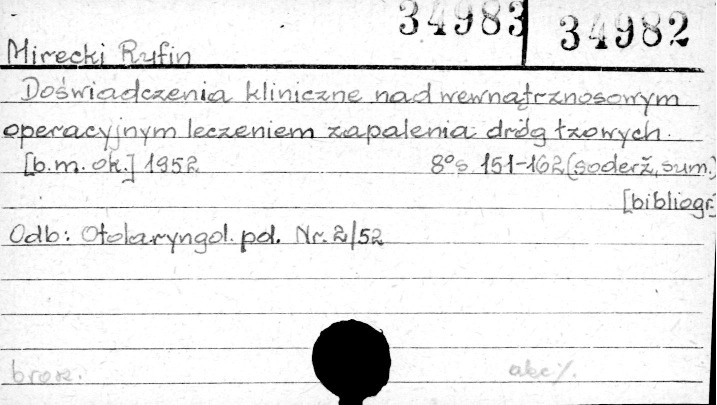 34983 34982
Mirecki Rufin
Doświadczenia kliniczne nad wewnątrznosowym
operacyjnym leczeniem zapalenia dróg łzowych.
[b.m. ok.] 1952 8° s 151-162 (soderž, sum.)
[bibliogr.]
Odb: Otolaryngol. pol. Nr. 2/52
brosz. akc%.